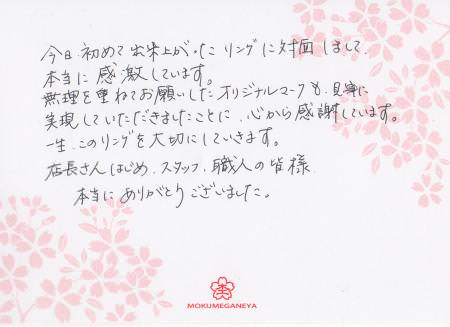 今日初めて出来上がったリングに対面しまして、
本当に感激しています。
無理を重ねてお願いしたオリジナルマークも、見事に
実現していただきましたことに、心から感謝しています。
一生、このリングを大切にしていきます。
店長さんはじめ、スタッフ、職人の皆様
本当にありがとうございました。
MOKUMEGANEYA